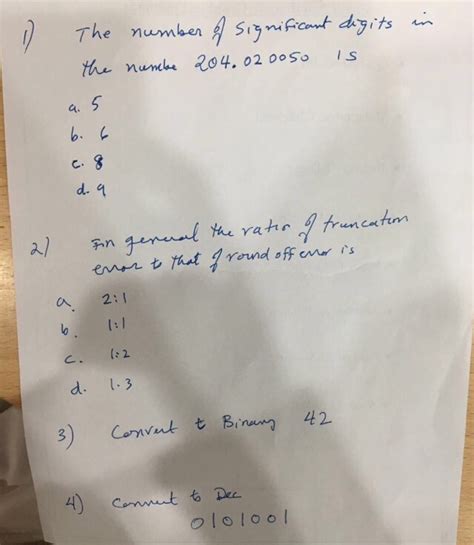 1) The number of significant digits in
the numbe 204.020050 is
a. 5
b. 6
c. 8
d. 9
2) In general the ratio of truncation
error to that of round off error is
a. 2:1
b. 1:1
c. 1:2
d. 1.3
3) Convert to Binary 42
4) Convert to Dec
0101001